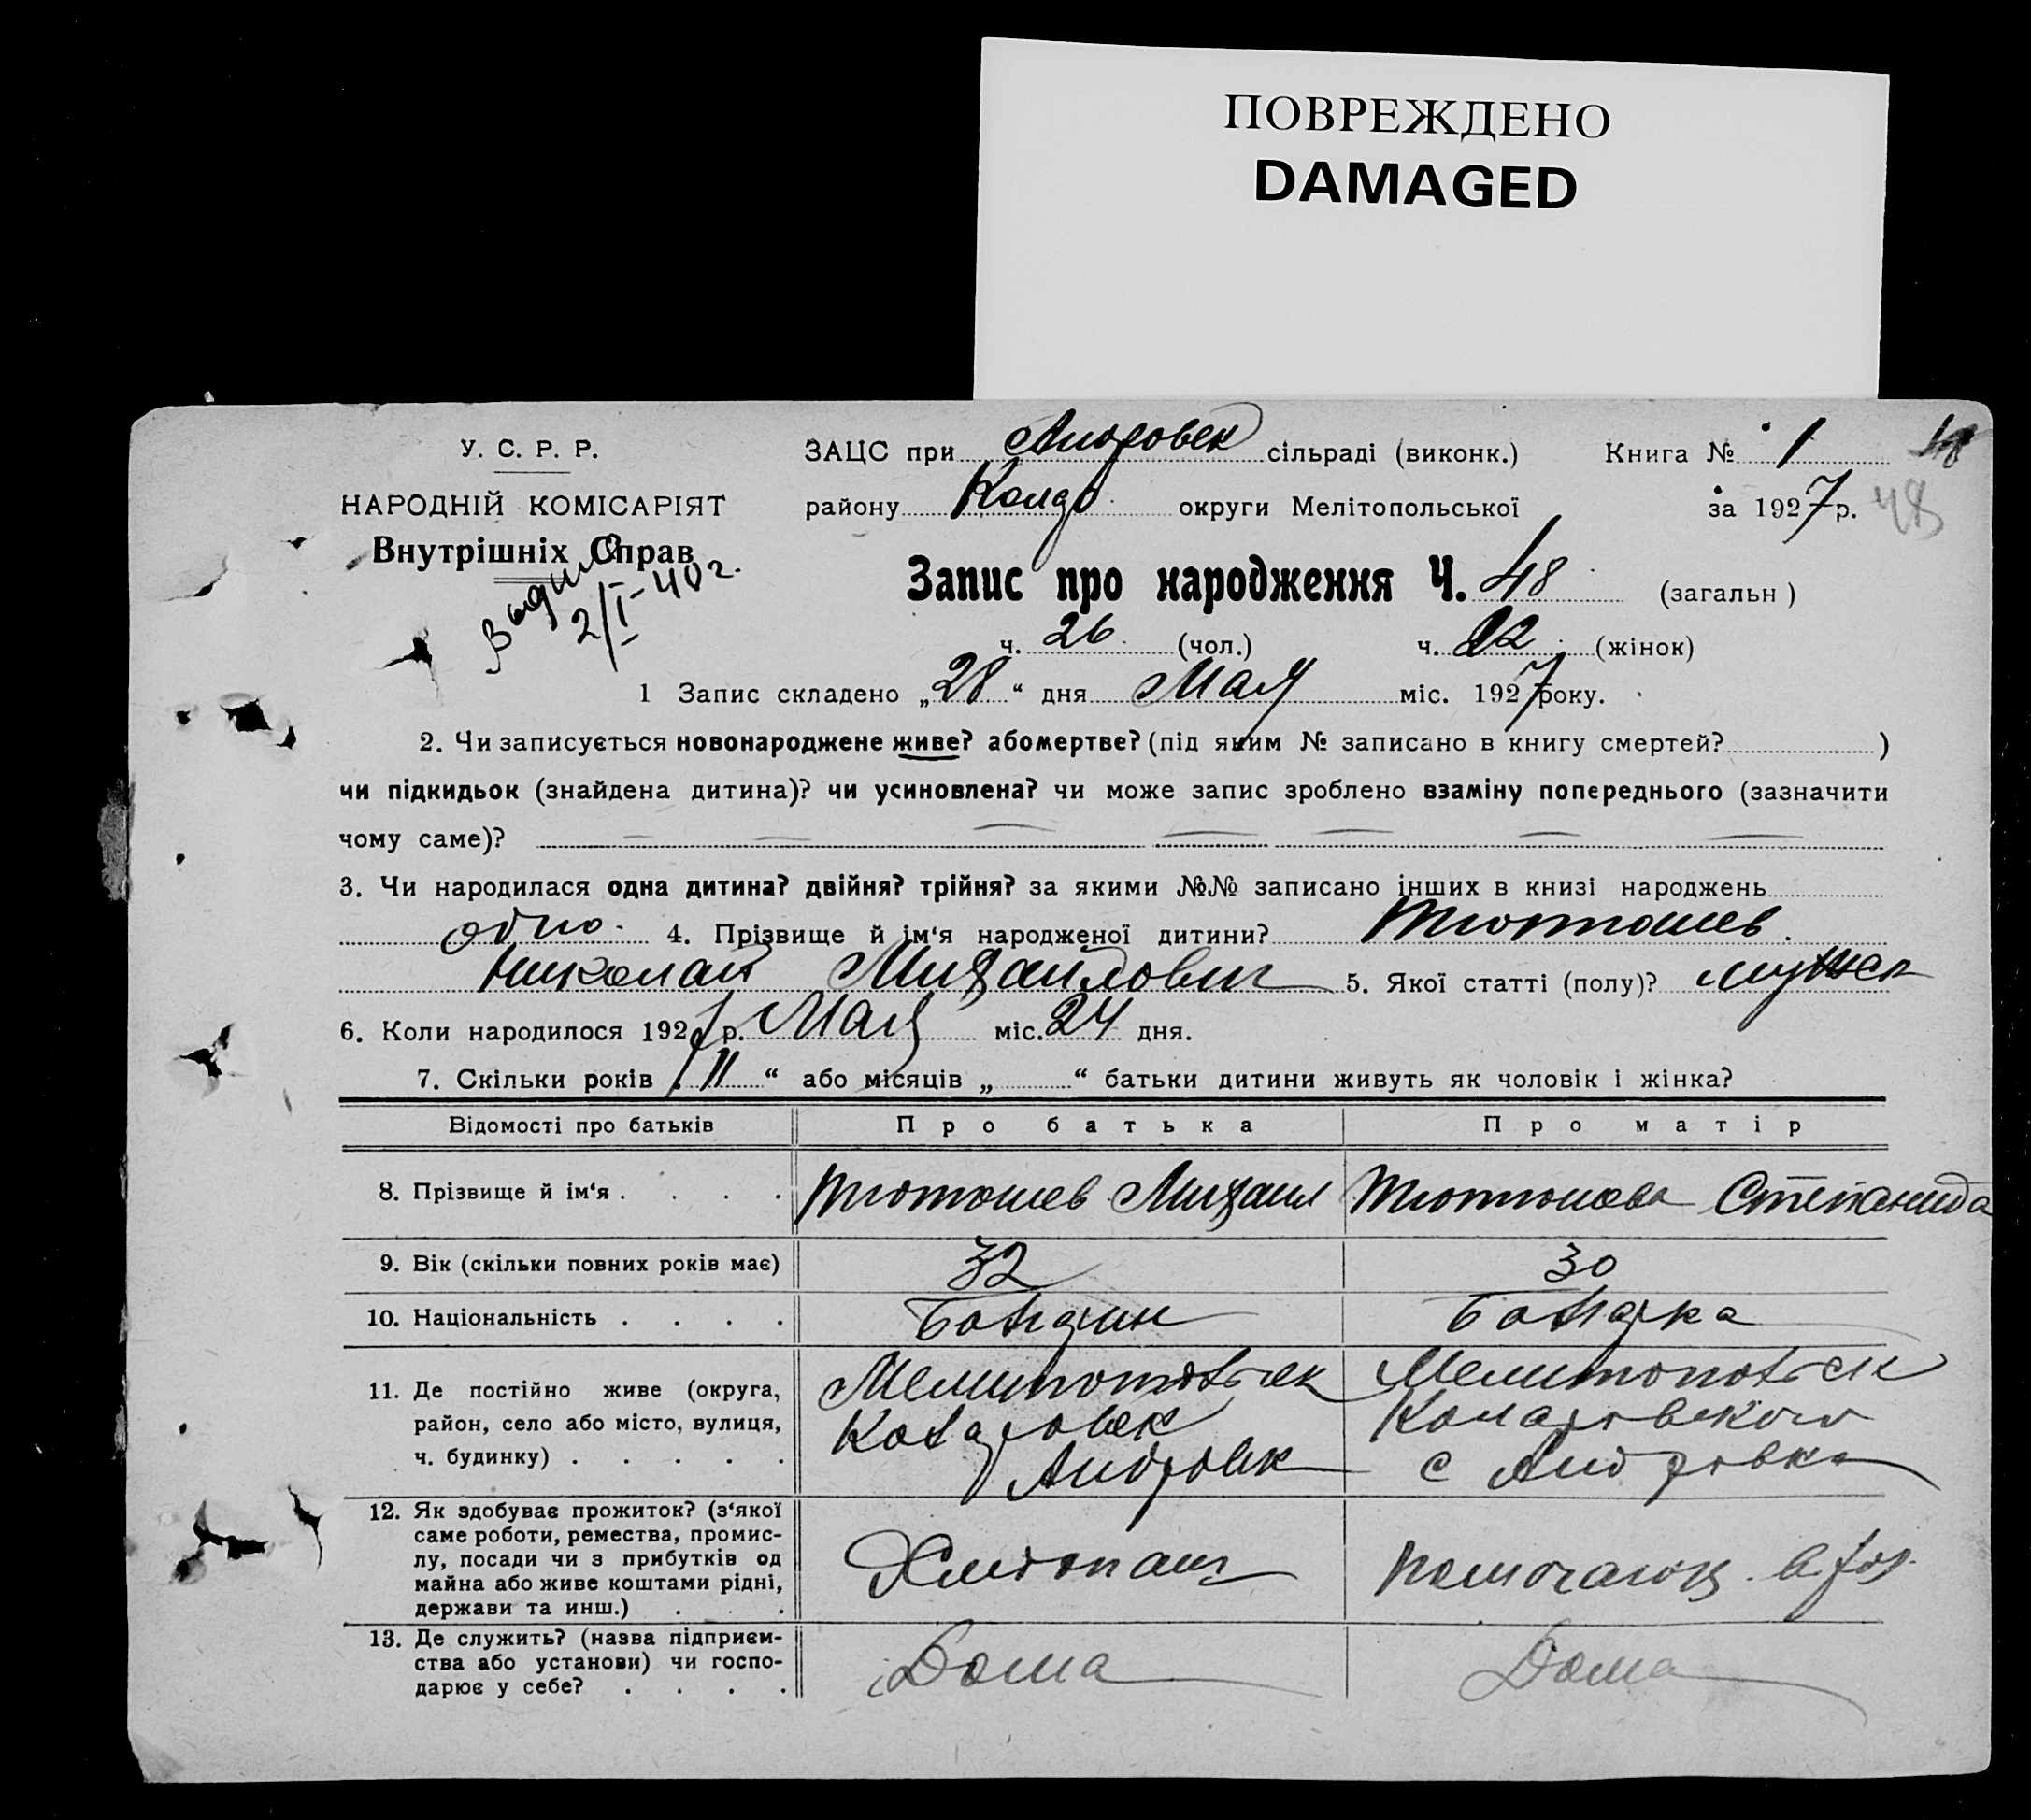 ПОВРЕЖДЕНО
DAMAGED
У. С. Р. Р.
НАРОДНІЙ КОМІСАРІЯТ
Внутрішніх Справ
2/I-40 г.
ЗАЦС при Андровск сільраді (виконк.) Книга № 1
району округи Мелітопольської за 1927 р. 48
Запис про народження Ч. 48 (загальн)
ч. 26 (чол.) ч. 22 (жінок)
1 Запис складено „28“ дня Мая міс. 1927 року.
2. Чи записується новонароджене живе? або мертве? (під яким № записано в книгу смертей? )
чи підкидьок (знайдена дитина)? чи усиновлена? чи може запис зроблено взаміну попереднього (зазначити
чому саме)?
3. Чи народилася одна дитина? двійня? трійня? за якими №№ записано інших в книзі народжень
одно. 4. Прізвище й ім‘я народженої дитини? Тютюшев.
Николай Михайлович 5. Якої статті (полу)? мужск
6. Коли народилося 1927 р. Мая міс. 24 дня.
7. Скільки років 11 “ або місяців „ “ батьки дитини живуть як чоловік і жінка?
Відомості про батьків Про батька Про матір
8. Прізвище й ім‘я . . . . Тютюшев Михаил Тютюшева Степанида
9. Вік (скільки повних років має) 32 30
10. Національність . . . . Болгарин Болгарка
11. Де постійно живе (округа, Мелитопольск Мелитопольск
район, село або місто, вулиця, Коларовск Коларовского
ч. будинку) . . . . . Андровк с Андровка
12. Як здобуває прожиток? (з‘якої
саме роботи, ремества, промис-
лу, посади чи з прибутків од Хлебопаш
майна або живе коштами рідні,
держави та инш.) . . .
13. Де служить? (назва підприєм-
ства або установи) чи госпо- Дома Дома
дарює у себе? . . . .